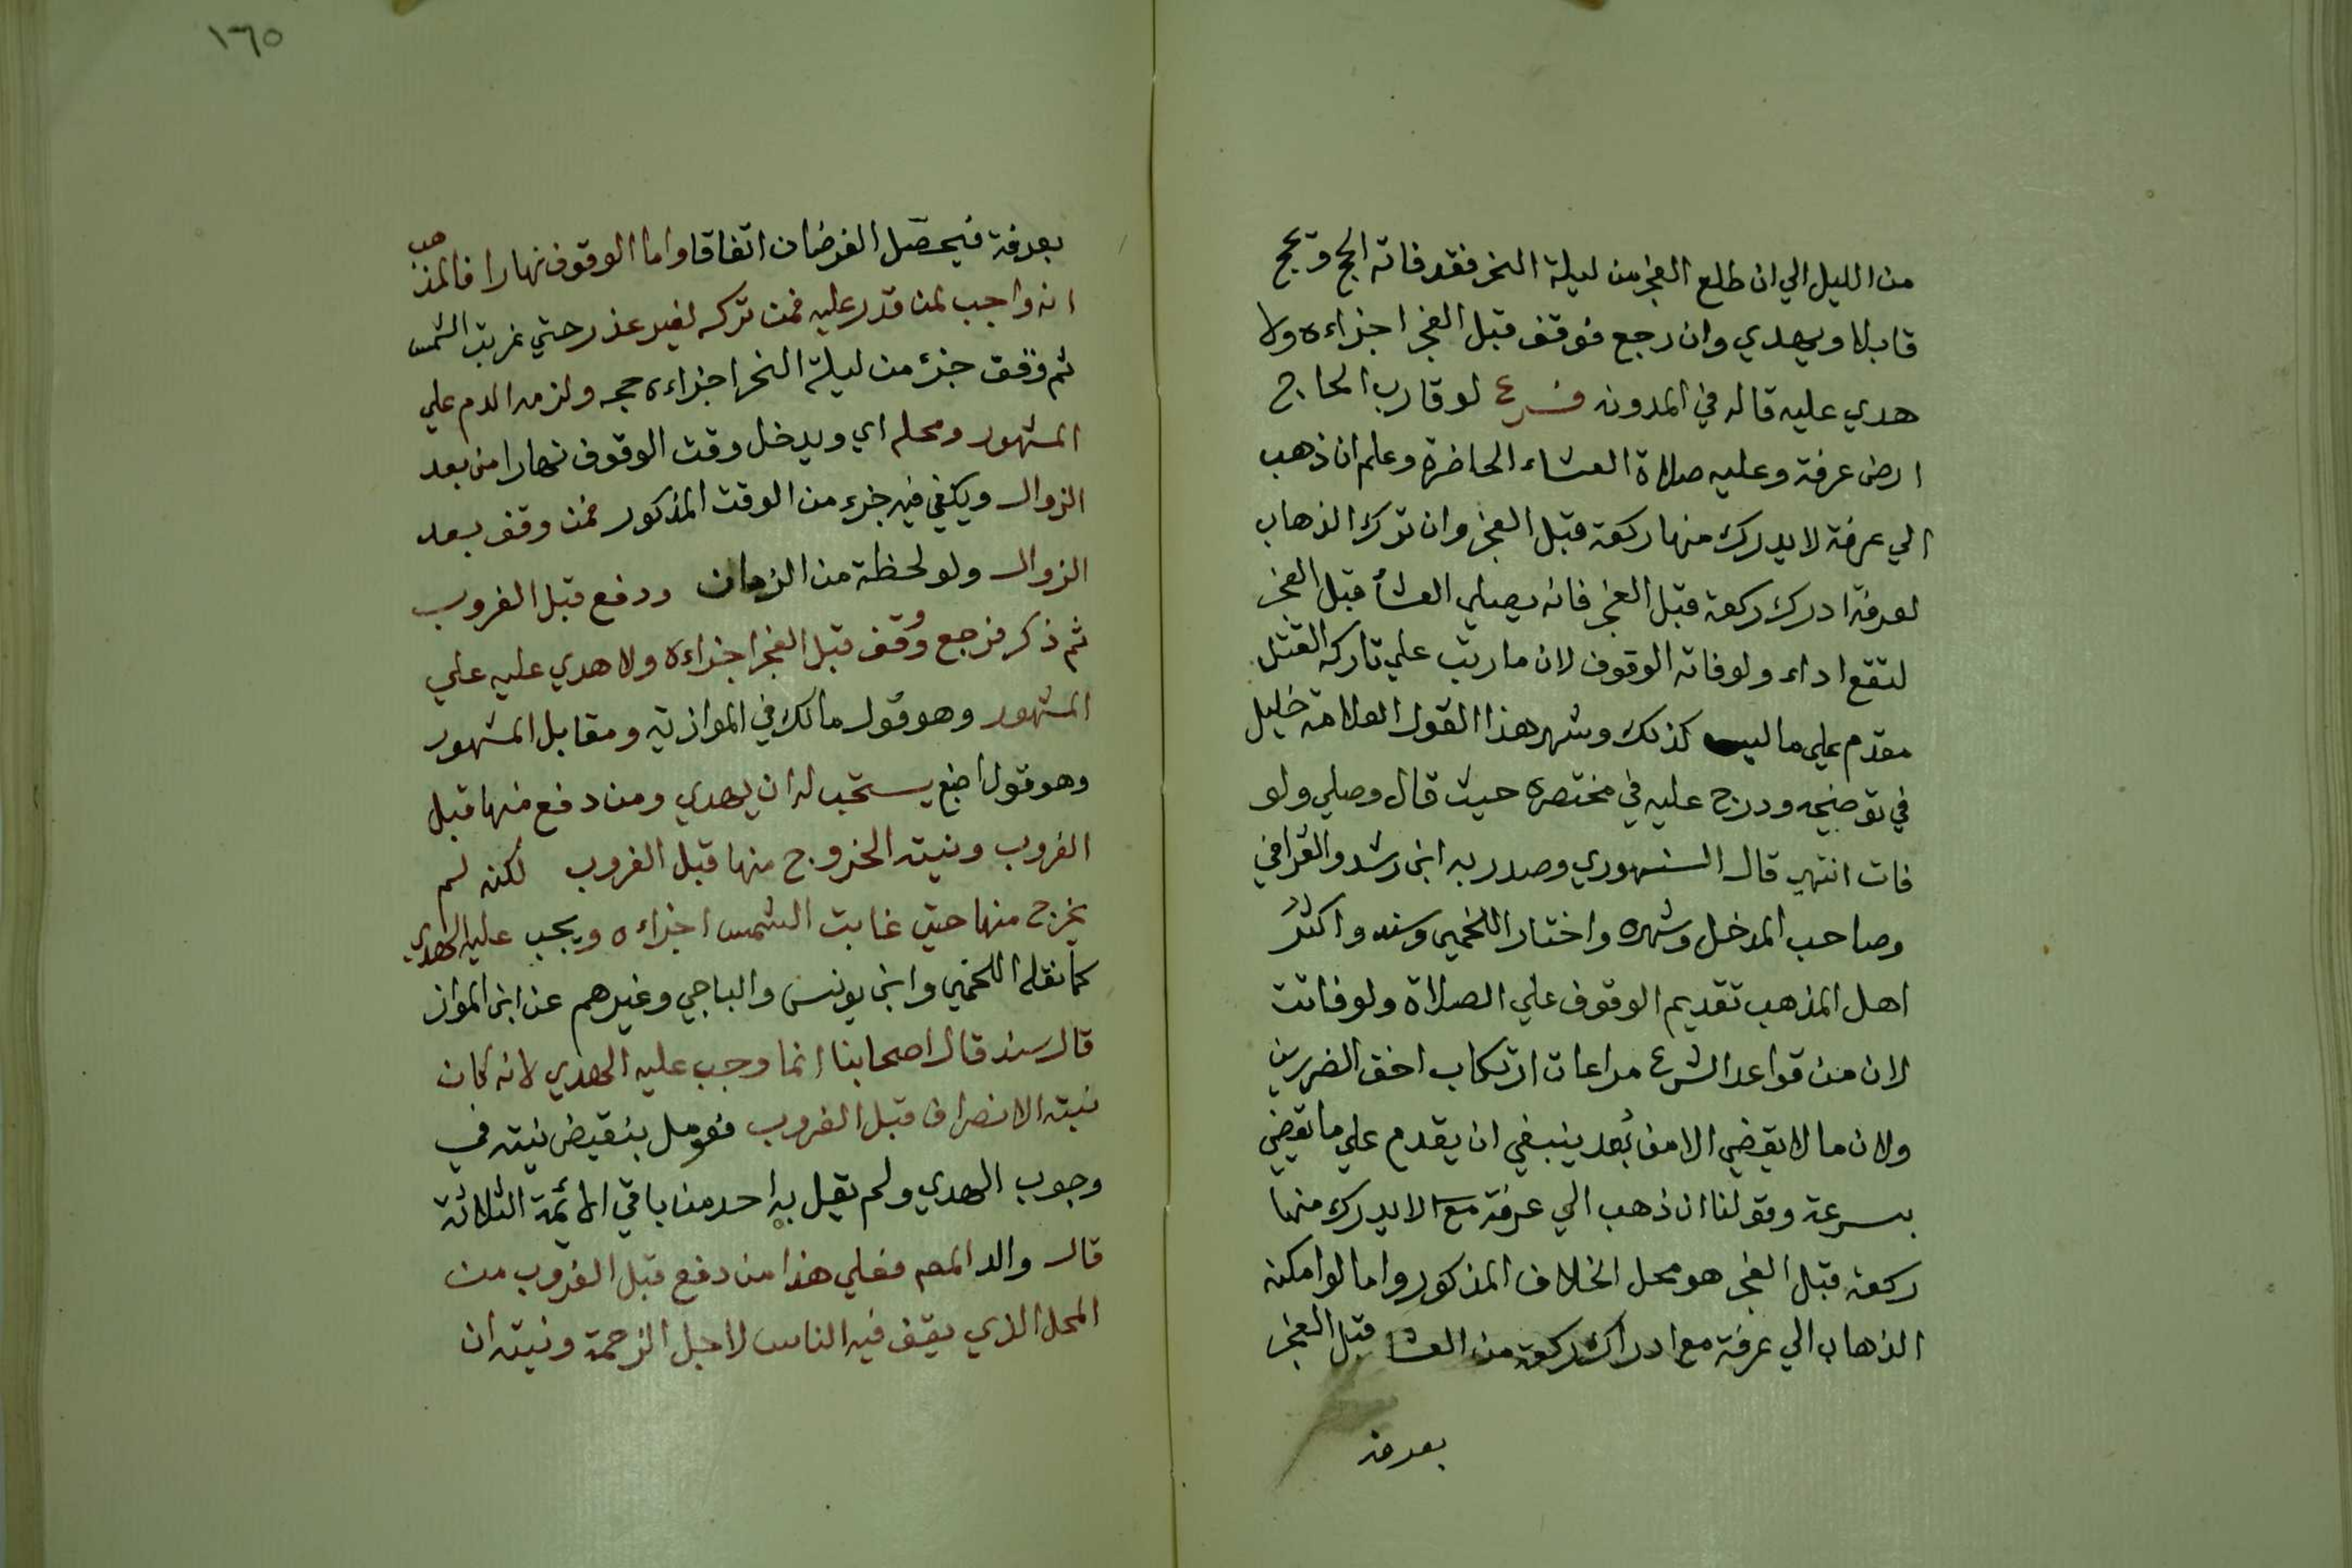 من الليل الي ان طلع الفجر من ليلة النحر فقد فاته الحج ويحج
قابلا ويهدي وان رجع فوقف قبل الفجر اجزاءه ولا
هدي عليه قاله في المدونه فرع لو قارب الحاج
ارض عرفة وعليه صلاة العشاء الحاضرة وعلم ان ذهب
الي عرفة لا يدرك منها ركعة قبل الفجر وان ترك الذهاب
لعرفة ادرك ركعة قبل الفجر فانه يصلي العشأ قبل الفجر
لتقع اداء ولو فاته الوقوف لان ما رتب علي تاركه القتل
مقدم علي ما ليس كذلك وشهر هذا القول العلامة خليل
في توضيحه ودرج عليه في مختصره حيث قال وصلي ولو
فات انتهي قال السنهوري وصدر به ابن رشد والقرافي
وصاحب المدخل وشهره واختار اللخمي وسند واكثر
اهل المذهب تقديم الوقوف علي الصلاة ولو فاتت
لان من قواعد الشرع مراعات ارتكاب اخف الضررين
ولان ما لا يقضي الا من بُعد ينبغي ان يقدم علي ما يقضي
بسرعة وقولنا ان ذهب الي عرفة مع لا يدرك منها
ركعة قبل الفجر هو محل الخلاف المذكور واما لو امكنه
الذهاب الي عرفة مع ادراك ركعة من العشا قبل الفجر
بعرفة
١٦٥
بعرفة فيحصل الفرضان اتفاقا واما الوقوف نهارا فالمذهب
انه واجب لمن قدر عليه فمن تركه لغير عذر حتي غربت الشمس
ثم وقف جزء من ليلة النحر اجزاءه حجه ولزمه الدم علي
المشهور ومحله اي ويدخل وقت الوقوف نهارا من بعد
الزوال ويكفي فيه جزء من الوقت المذكور فمن وقف بعد
الزوال ولو لحظة من الزمان ودفع قبل الغروب
ثم ذكر فرجع ووقف قبل الفجر اجزاءه ولا هدي عليه علي
المشهور وهو قول مالك في الموازية ومقابل المشهور
وهو قول اصبغ يستحب له ان يهدي ومن دفع منها قبل
الغروب ونيته الخروج منها قبل الغروب لكنه لم
يخرج منها حتي غابت الشمس اجزاءه ويجب عليه الهدي
كما نقله اللخمي وابن يونس والباجي وغيرهم عن ابن المواز
قال سند قال اصحابنا انما وجب عليه الهدي لانه كان
نيته الانصراف قبل الغروب فعومل بنقيض نيته في
وجوب الهدي ولم يقل به احد من باقي الائمة الثلاثة
قال والد المص فعلي هذا من دفع قبل الغروب من
المحل الذي يقف فيه الناس لاجل الزحمة ونيته ان